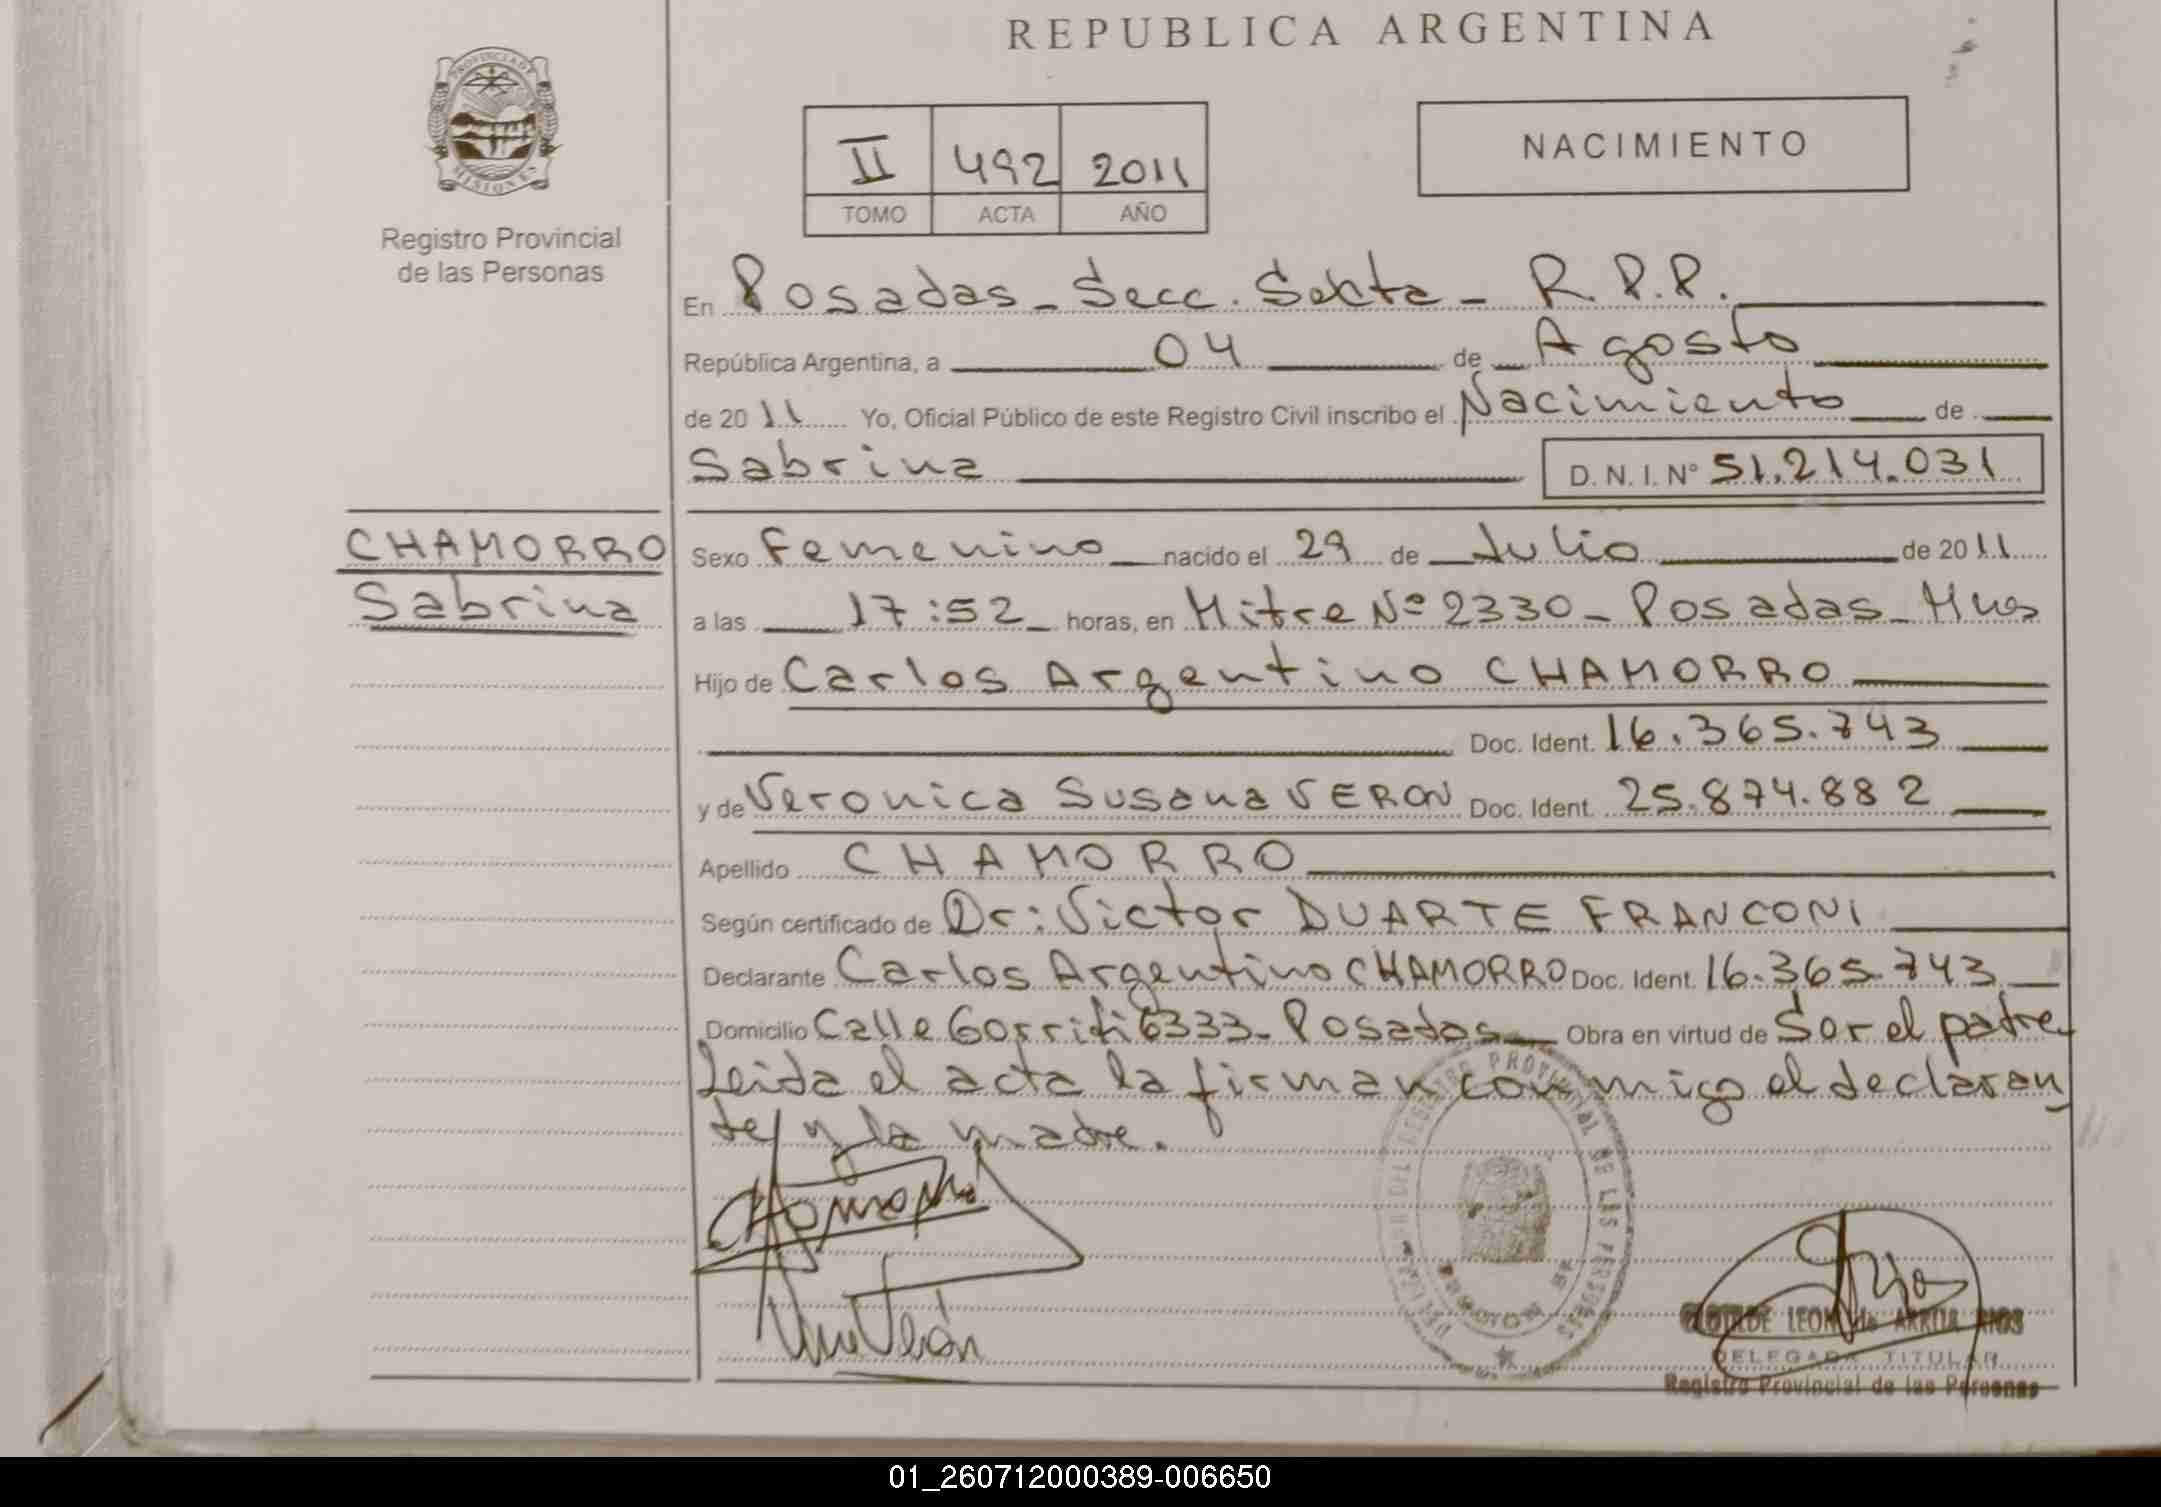 REPUBLICA ARGENTINA
PROVINCIA DE
MISIONES
Registro Provincial
de las Personas
II 492 2011
TOMO ACTA AÑO
NACIMIENTO
En Posadas - Secc. Sexta - R.P.P.
República Argentina, a 04 de Agosto
de 2011 Yo, Oficial Público de este Registro Civil inscribo el Nacimiento de
Sabrina D. N. I. N° 51.214.031
CHAMORRO
Sabrina
Sexo Femenino nacido el 29 de Julio de 2011
a las 17:52 horas, en Mitre Nº 2330 - Posadas - Mnes
Hijo de Carlos Argentino CHAMORRO
Doc. Ident. 16.365.743
y de Veronica Susana VERON Doc. Ident. 25.874.882
Apellido CHAMORRO
Según certificado de Dr: Victor DUARTE FRANCONI
Declarante Carlos Argentino CHAMORRO Doc. Ident. 16.365.743
Domicilio Calle Gorriti 6333 - Posadas Obra en virtud de Ser el padre
Leida el acta la firman conmigo el declaran
te y la madre.
REGISTRO PROVINCIAL DE LAS PERSONAS
LEON de
DELEGADA TITULAR
Registro Provincial de las Personas
01_260712000389-006650